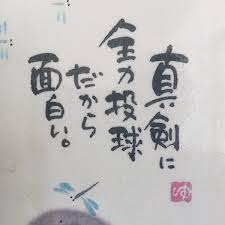 真剣に
全力投球
だから
面白い。
ゆ